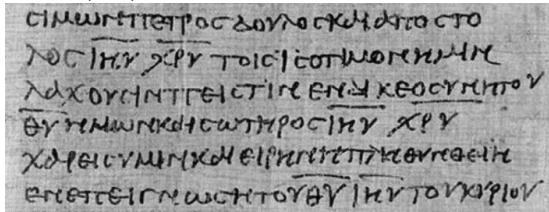 ϲιμωνπετροϲδουλοϲκαιαποϲτο
λοϲ ι̅η̅υ̅ χ̅ρ̅υ̅ τοιϲιϲοτιμονημιν
λαχουϲινπειϲτινενδικεοϲυνητου
θ̅υ̅ημωνκαιϲωτηροϲ ι̅η̅υ̅ χ̅ρ̅υ̅
χαρειϲυμινκαιειρηνηπληθυνθειη
ενεπειγνωϲητουθ̅υ̅ ι̅η̅υ̅ τουκυριου